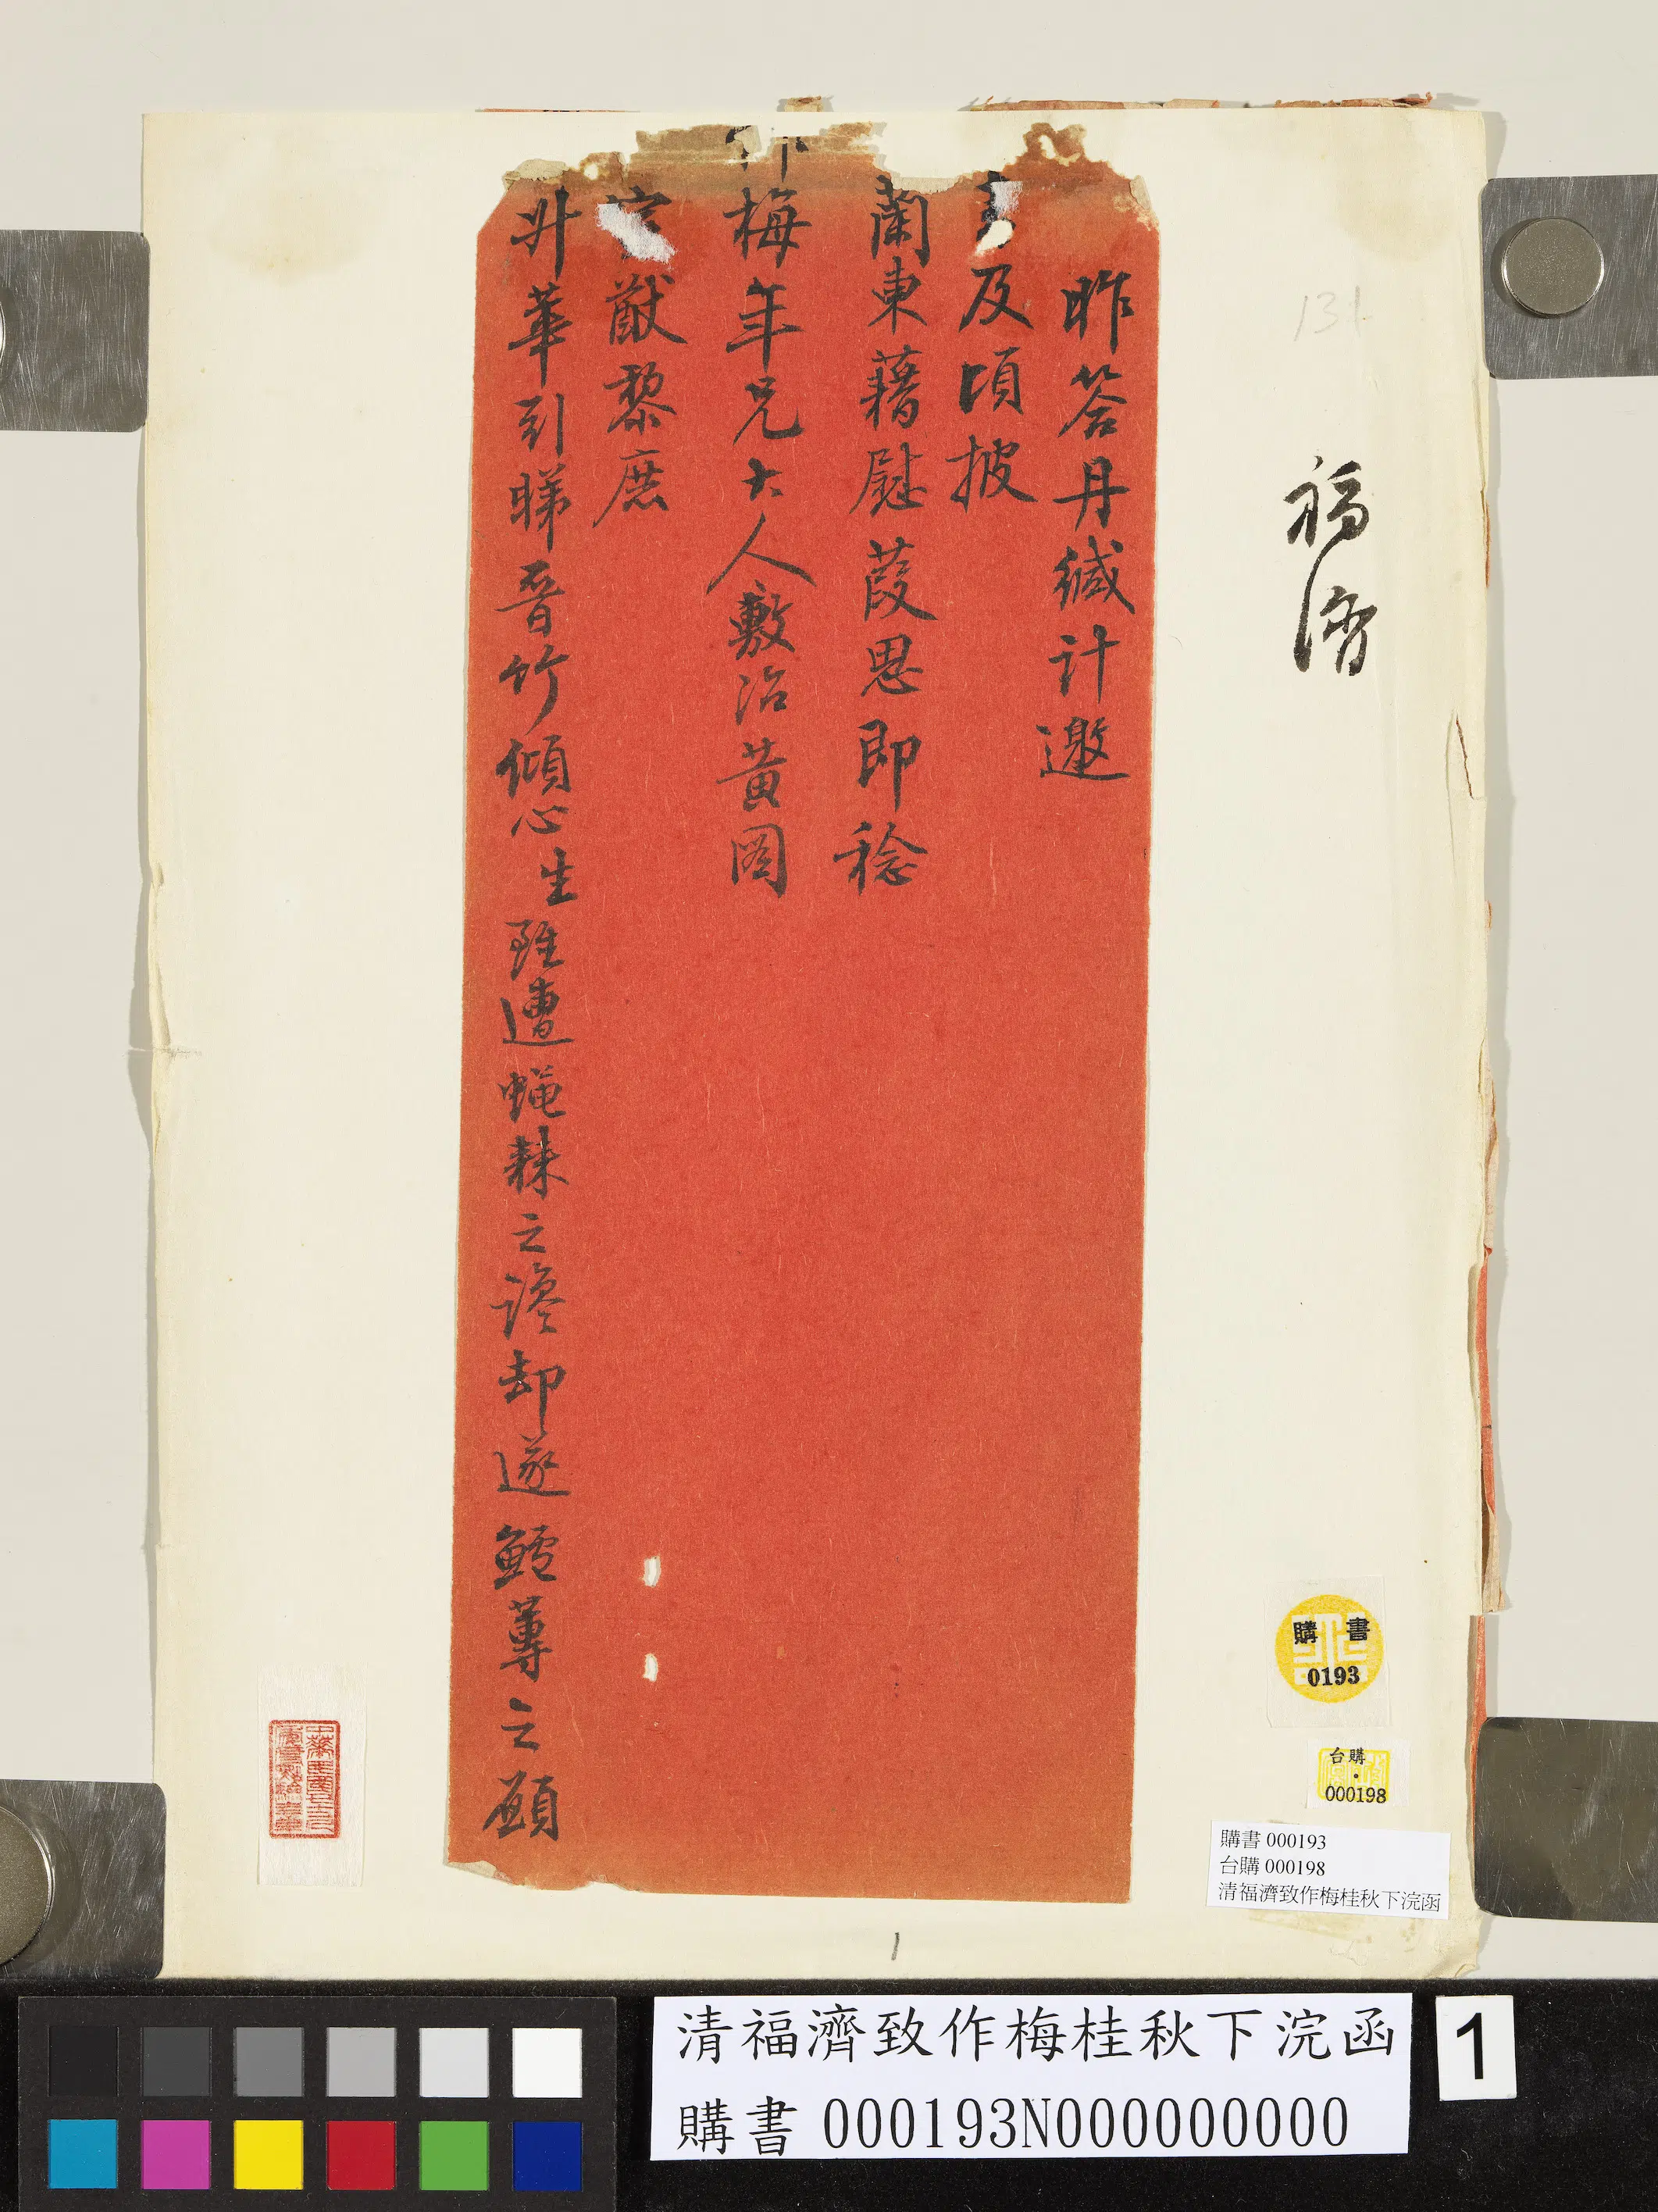 福濟
131
昨答丹緘計邀
及頃披
蘭東藉慰葭思即稔
梅年兄大人敷治黃图
猷黎庶
升華引睇晉竹傾心生雖遭蝇棘之讒却遂鱸蓴之願
購書
0193
台購
000198
購書 000193
台購 000198
清福濟致作梅桂秋下浣函
1
清福濟致作梅桂秋下浣函
購書 000193N000000000
1